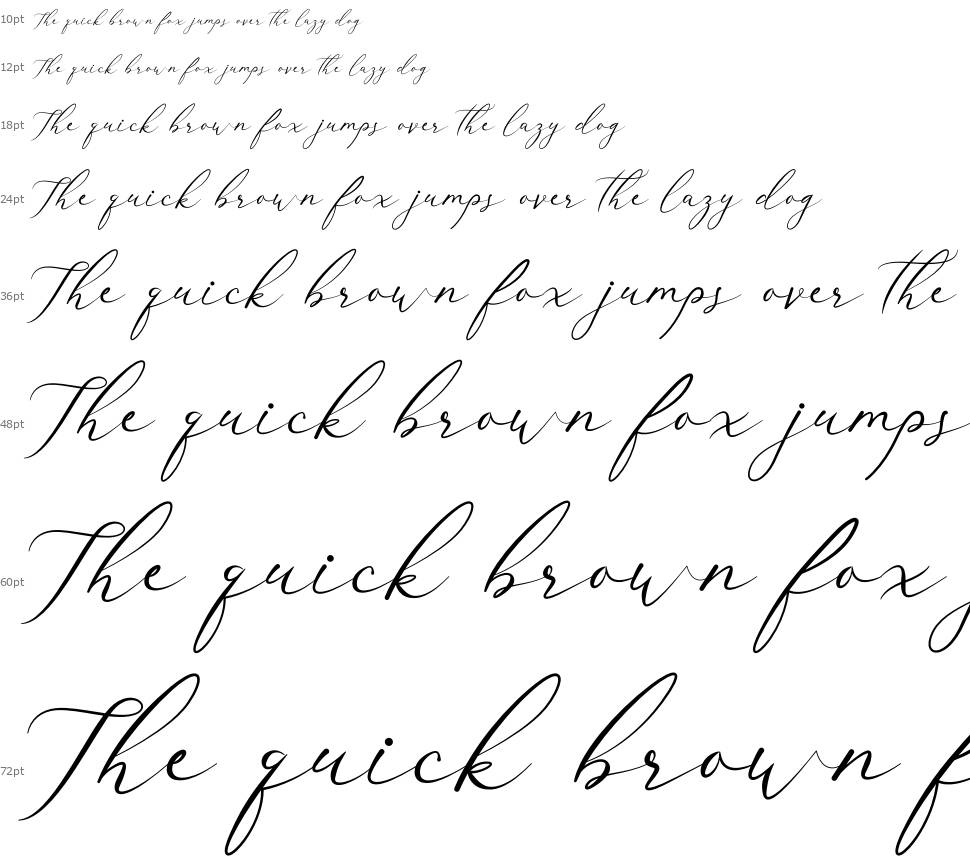 10pt The quick brown fox jumps over the lazy dog
12pt The quick brown fox jumps over the lazy dog
18pt The quick brown fox jumps over the lazy dog
24pt The quick brown fox jumps over the lazy dog
36pt The quick brown fox jumps over the
48pt The quick brown fox jumps
60pt The quick brown fox j
72pt The quick brown f